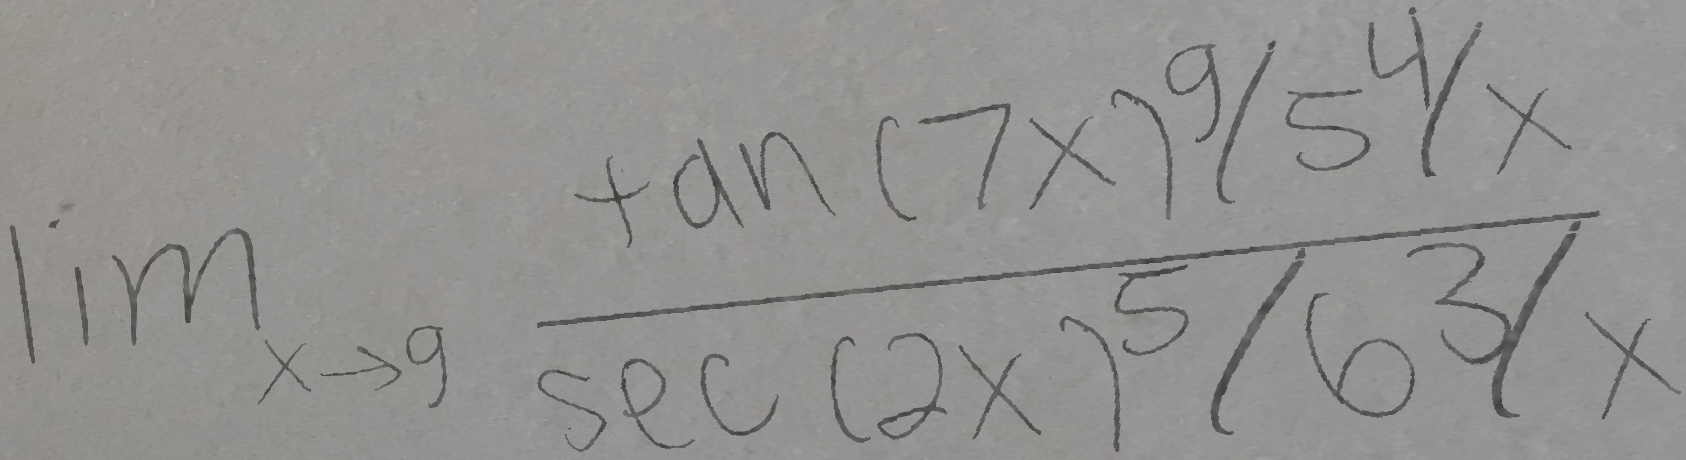 \lim_{x \to 9} \frac{\tan(7x)^9/5^4/x}{\sec(2x)^5/6^3/x}